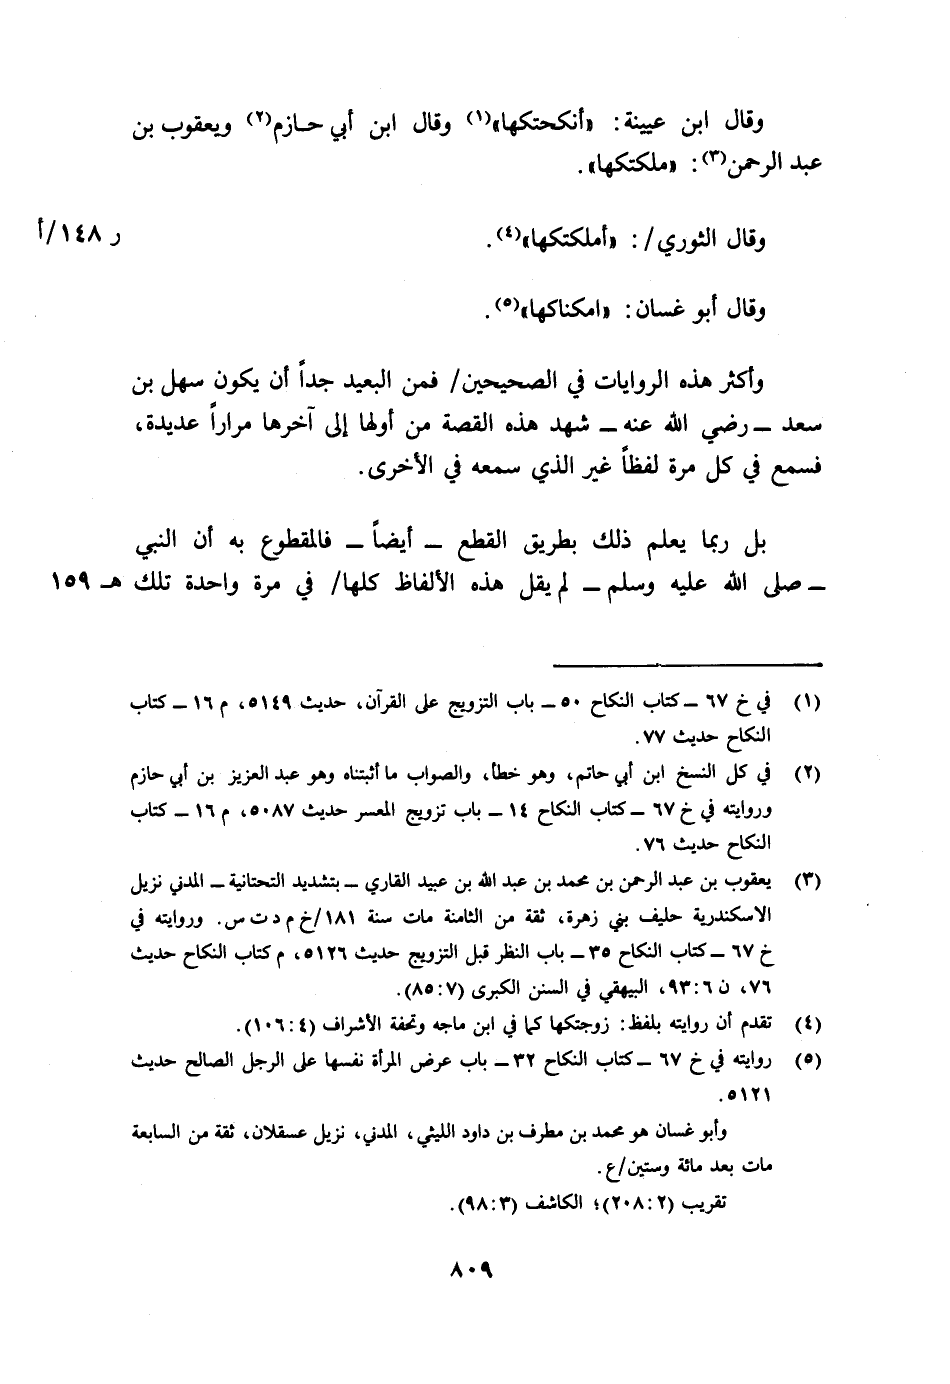 وقال ابن عيينة: «أنكحتكها»(١) وقال ابن أبي حازم(٢) ويعقوب بن
عبد الرحمن(٣): «ملكتكها».
وقال الثوري/: «أملكتكها»(٤). ر ١٤٨/أ
وقال أبو غسان: «امكناكها»(٥).
وأكثر هذه الروايات في الصحيحين/ فمن البعيد جداً أن يكون سهل بن
سعد ــ رضي الله عنه ــ شهد هذه القصة من أولها إلى آخرها مراراً عديدة،
فسمع في كل مرة لفظاً غير الذي سمعه في الأخرى.
بل ربما يعلم ذلك بطريق القطع ــ أيضاً ــ فالمقطوع به أن النبي
ــ صلى الله عليه وسلم ــ لم يقل هذه الألفاظ كلها/ في مرة واحدة تلك هـ ١٥٩
(١) في خ ٦٧ ــ كتاب النكاح ٥٠ ــ باب التزويج على القرآن، حديث ٥١٤٩، م ١٦ ــ كتاب
النكاح حديث ٧٧.
(٢) في كل النسخ ابن أبي حاتم، وهو خطأ، والصواب ما أثبتناه وهو عبد العزيز بن أبي حازم
وروايته في خ ٦٧ ــ كتاب النكاح ١٤ ــ باب تزويج المعسر حديث ٥٠٨٧، م ١٦ ــ كتاب
النكاح حديث ٧٦.
(٣) يعقوب بن عبد الرحمن بن محمد بن عبد الله بن عبيد القاري ــ بتشديد التحتانية ــ المدني نزيل
الاسكندرية حليف بني زهرة، ثقة من الثامنة مات سنة ١٨١/خ م د ت س. وروايته في
خ ٦٧ ــ كتاب النكاح ٣٥ ــ باب النظر قبل التزويج حديث ٥١٢٦، م كتاب النكاح حديث
٧٦، ن ٦: ٩٣، البيهقي في السنن الكبرى (٧: ٨٥).
(٤) تقدم أن روايته بلفظ: زوجتكها كما في ابن ماجه وتحفة الأشراف (٤: ١٠٦).
(٥) روايته في خ ٦٧ ــ كتاب النكاح ٣٢ ــ باب عرض المرأة نفسها على الرجل الصالح حديث
٥١٢١.
وأبو غسان هو محمد بن مطرف بن داود الليثي، المدني، نزيل عسقلان، ثقة من السابعة
مات بعد مائة وستين/ع.
تقريب (٢: ٢٠٨)؛ الكاشف (٣: ٩٨).
٨٠٩